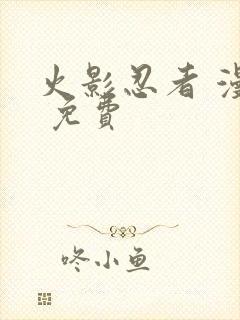 火影忍者 漫
免費
咚小鱼